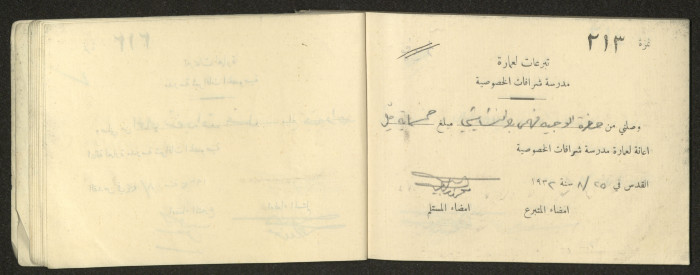 نمرة ٢١٣
تبرعات لعمارة
مدرسة شرافات الخصوصية
وصلني من حضرة الوجيه فهمي النشاشيبي مبلغ خمسماية مل
اعانة لعمارة مدرسة شرافات الخصوصية
القدس في ٢٥/ ٨ سنة ١٩٣٢
امضاء المتبرع امضاء المستلم